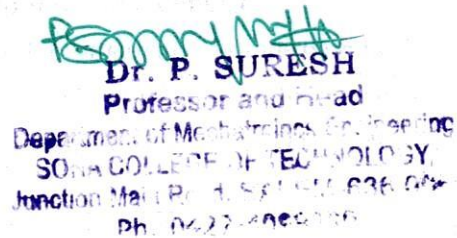 Dr. P. SURESH
Professor and Head
Department of Mechatronics Engineering
SONA COLLEGE OF TECHNOLOGY,
Junction Main Road,
Ph.